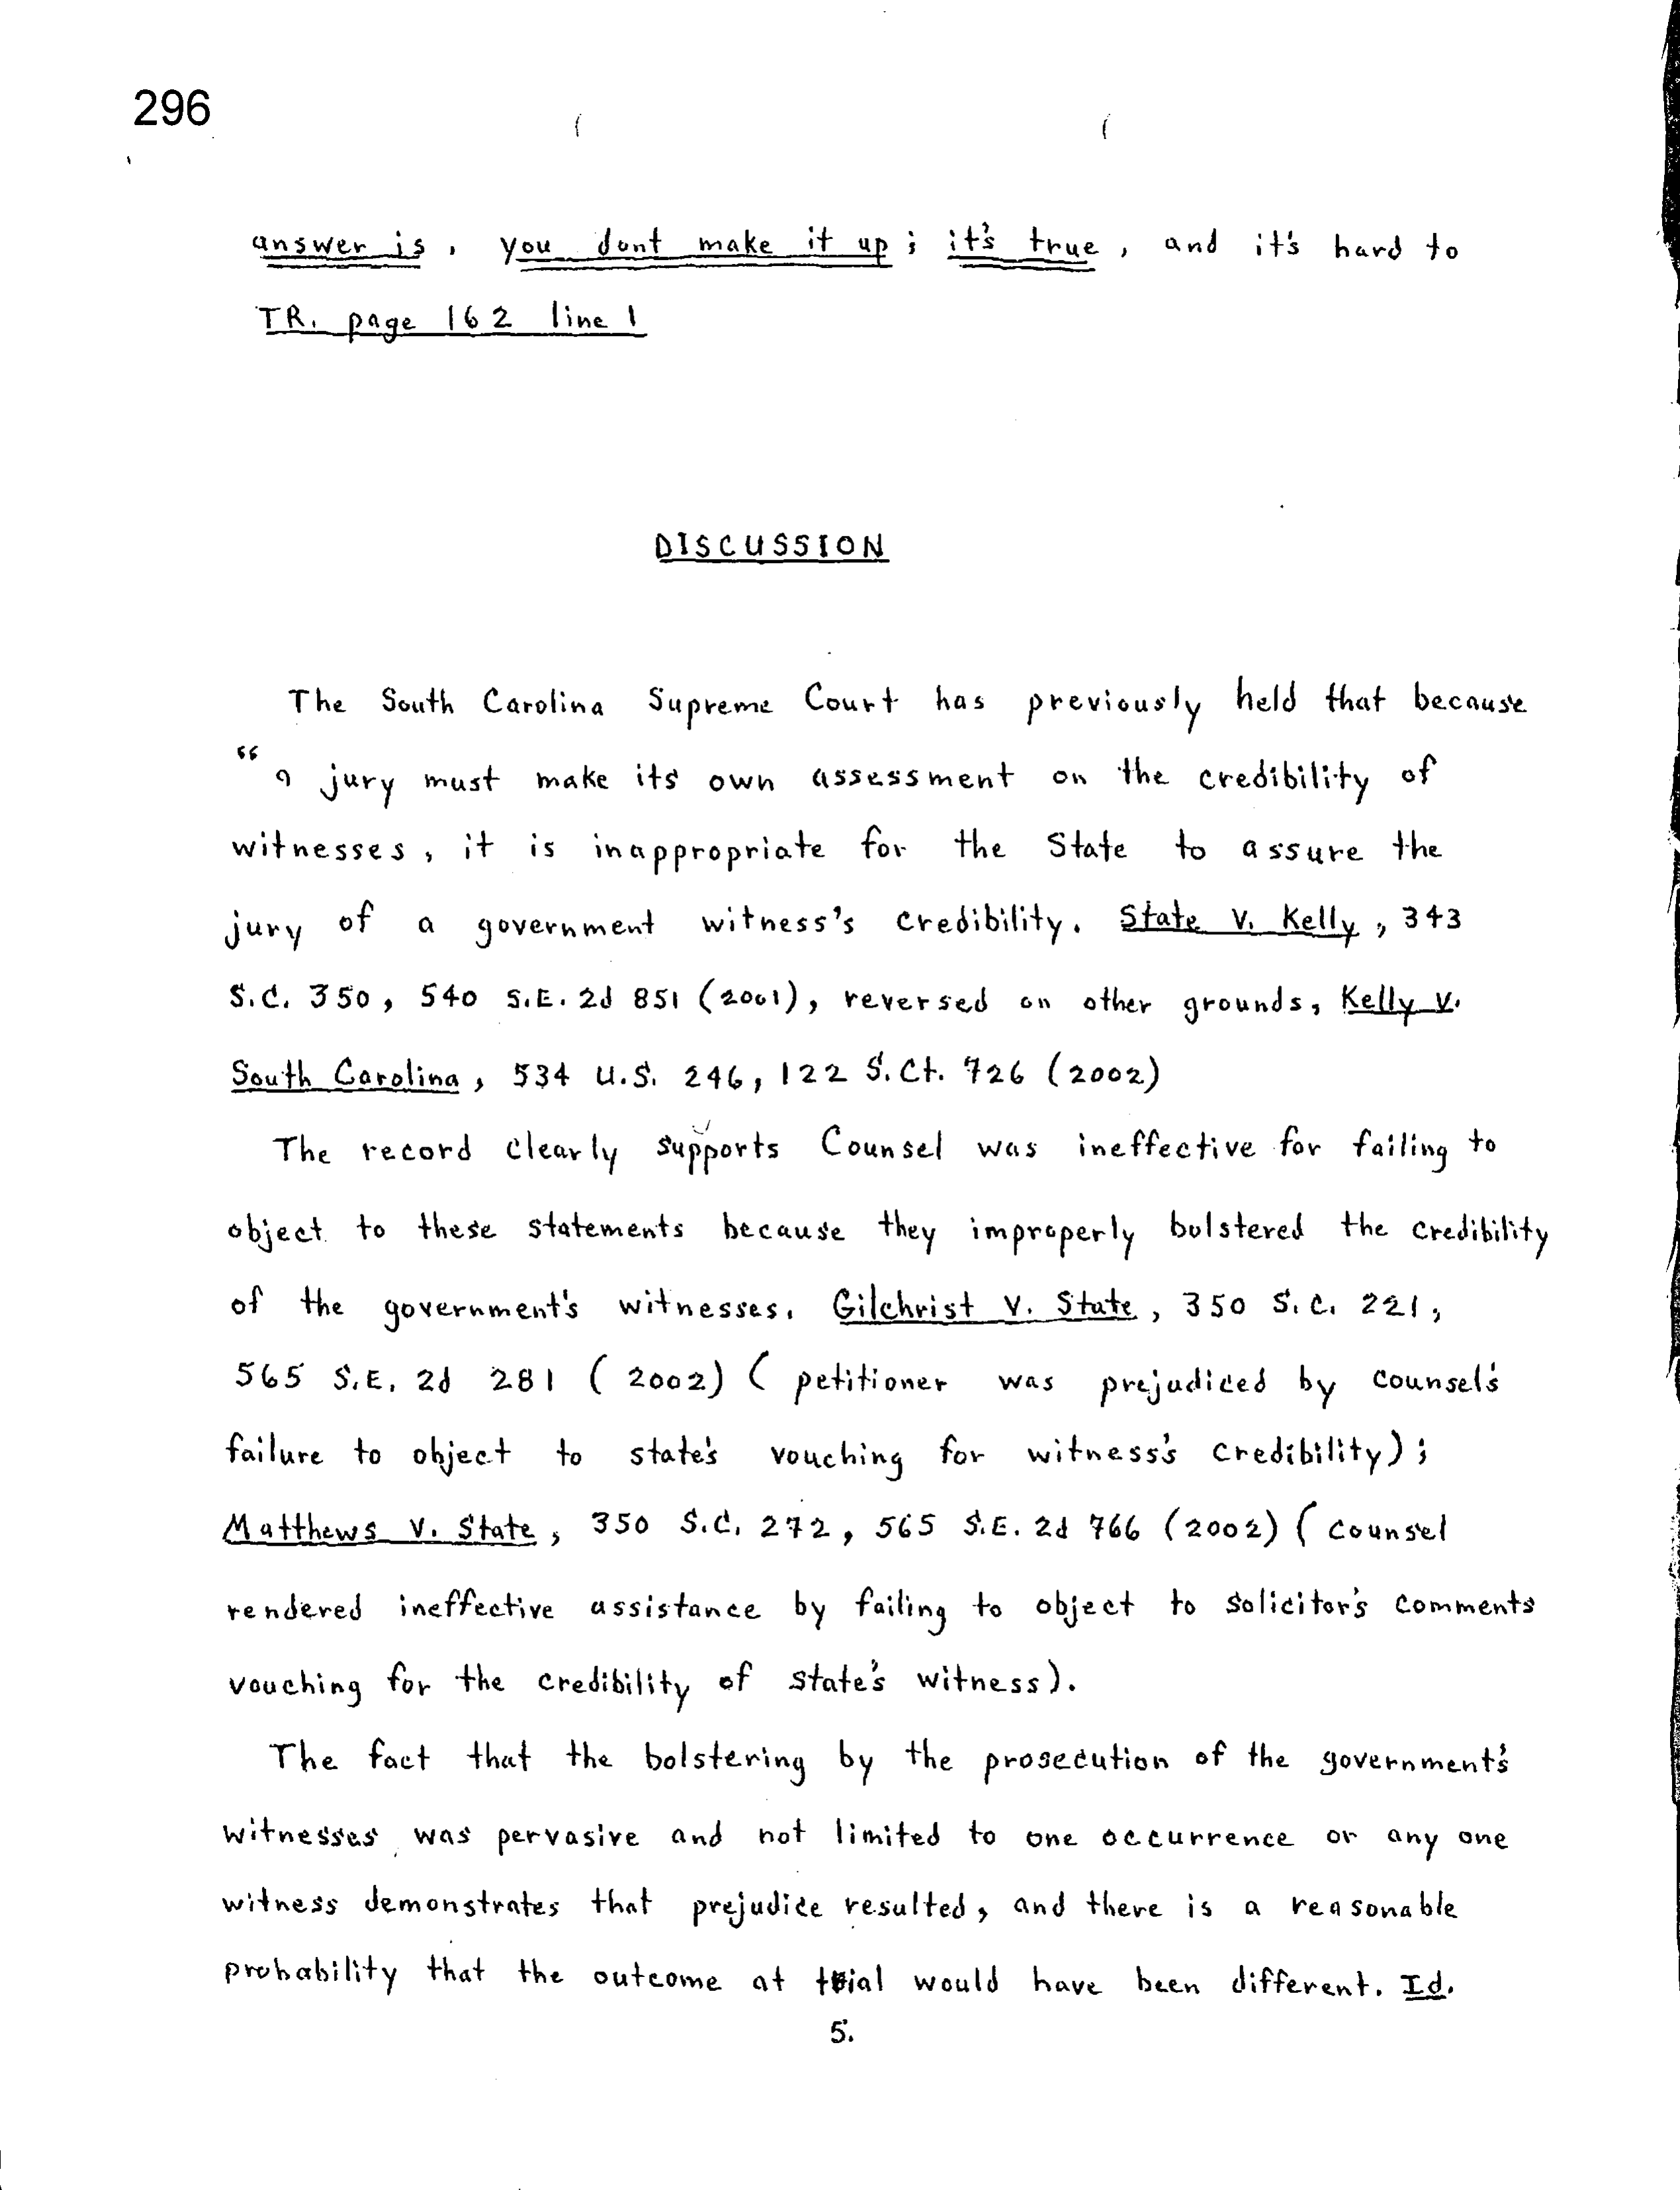 296
answer is, you dont make it up; it's true, and it's hard to
TR. page 162 line 1
DISCUSSION
The South Carolina Supreme Court has previously held that because
" a jury must make its own assessment on the credibility of
witnesses, it is inappropriate for the State to assure the
jury of a government witness's credibility. State v. Kelly, 343
S.C. 350, 540 S.E. 2d 851 (2001), reversed on other grounds, Kelly v.
South Carolina, 534 U.S. 246, 122 S.Ct. 726 (2002)
The record clearly supports Counsel was ineffective for failing to
object to these statements because they improperly bolstered the credibility
of the government's witnesses. Gilchrist v. State, 350 S.C. 221,
565 S.E. 2d 281 (2002) ( petitioner was prejudiced by counsel's
failure to object to state's vouching for witness's credibility);
Matthews v. State, 350 S.C. 272, 565 S.E. 2d 766 (2002) ( counsel
rendered ineffective assistance by failing to object to solicitor's comments
vouching for the credibility of state's witness).
The fact that the bolstering by the prosecution of the government's
witnesses was pervasive and not limited to one occurrence or any one
witness demonstrates that prejudice resulted, and there is a reasonable
probability that the outcome at trial would have been different. Id.
5.